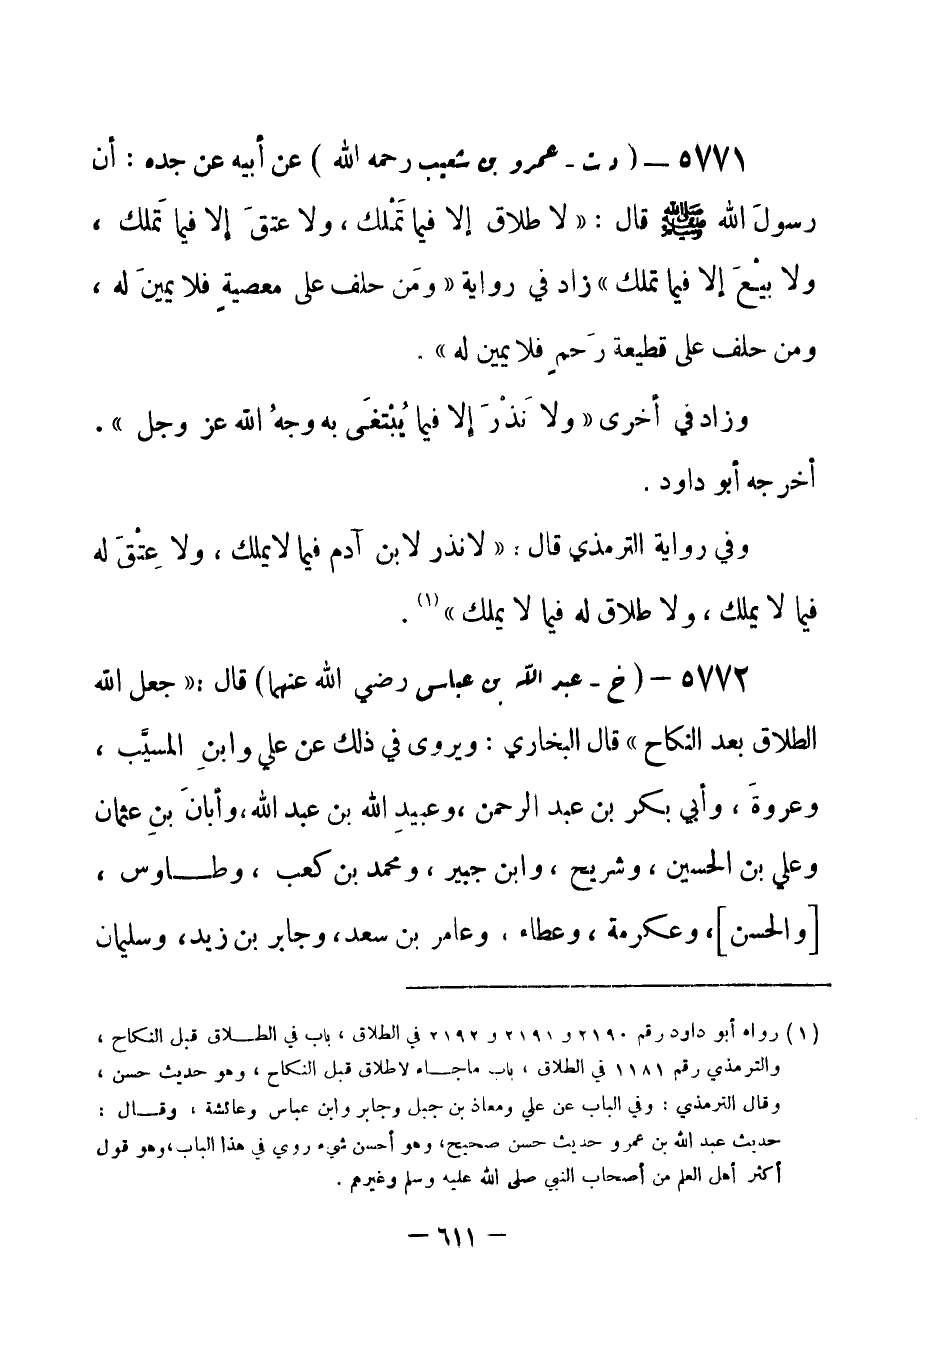 ٥٧٧١ – ( د ت - عمرو بن شعيب رحمه الله ) عن أبيه عن جده : أن
رسولَ الله ﷺ قال : « لا طلاق إلا فيما تَمْلك ، ولا عتقَ إلا فيما تَملك ،
ولا بيْعَ إلا فيما تملك » زاد في رواية « ومَن حلف على معصيةٍ فلا يمينَ له ،
ومن حلف على قطيعة رَحمٍ فلا يمين له » .
وزاد في أخرى « ولا نَذْرَ إلا فيما يُبْتغَى به وجهُ الله عز وجل » .
أخرجه أبو داود .
وفي رواية الترمذي قال : « لا نذر لابن آدم فيما لا يملك ، ولا عِتْقَ له
فيما لا يملك ، ولا طلاق له فيما لا يملك »(١) .
٥٧٧٢ – ( خ - عبد الله بن عباس رضي الله عنهما ) قال : « جعل الله
الطلاق بعد النكاح » قال البخاري : ويروى في ذلك عن علي وابنِ المسيَّب ،
وعروةَ ، وأبي بكر بن عبد الرحمن ، وعبيدِ الله بن عبد الله ، وأبانَ بنِ عثمان
وعلي بن الحسين ، وشريح ، وابن جبير ، ومحمد بن كعب ، وطـــاوس ،
[ والحسن ] ، وعكرمة ، وعطاء ، وعامر بن سعد ، وجابر بن زيد ، وسليمان
(١) رواه أبو داود رقم ٢١٩٠ و ٢١٩١ و ٢١٩٢ في الطلاق ، باب في الطـــلاق قبل النكاح ،
والترمذي رقم ١١٨١ في الطلاق ، باب ماجـــاء لا طلاق قبل النكاح ، وهو حديث حسن ،
وقال الترمذي : وفي الباب عن علي ومعاذ بن جبل وجابر وابن عباس وعائشة ، وقـــال :
حديث عبد الله بن عمرو حديث حسن صحيح ، وهو أحسن شيء روي في هذا الباب ، وهو قول
أكثر أهل العلم من أصحاب النبي صلى الله عليه وسلم وغيرهم .
– ٦١١ –